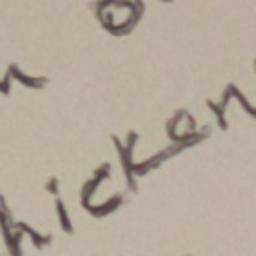 n o
hicken